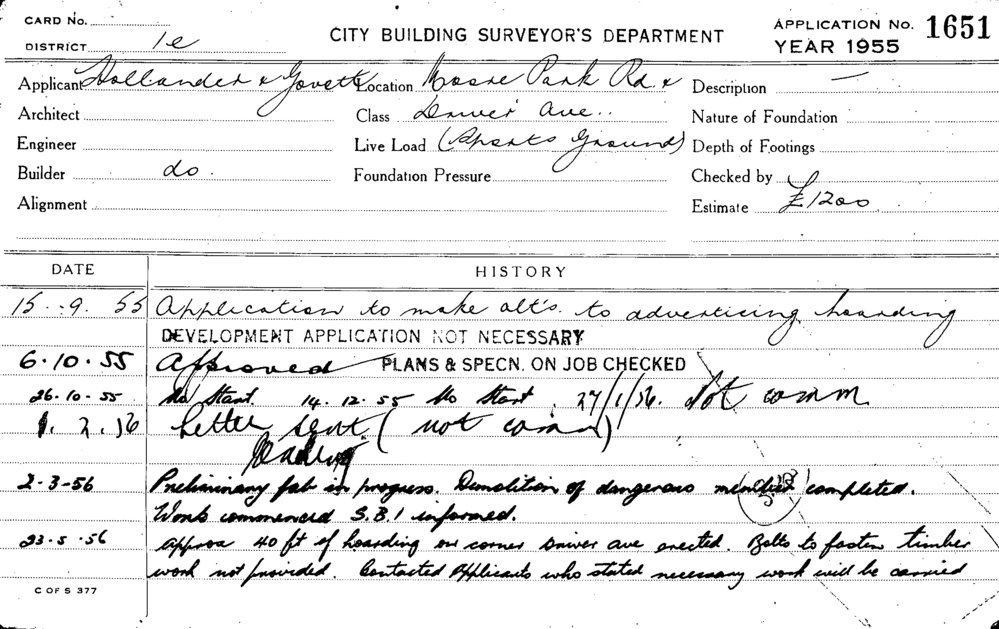 CARD No.
DISTRICT 1e
CITY BUILDING SURVEYOR'S DEPARTMENT
APPLICATION No. 1651
YEAR 1955
Applicant Hollander & Govett Location Moore Park Rd. & Description —
Architect Class Driver Ave.. Nature of Foundation
Engineer Live Load (Sports Ground) Depth of Footings
Builder do. Foundation Pressure Checked by
Alignment Estimate £1200
DATE HISTORY
15.9.55 Application to make alt's. to advertising hoarding
DEVELOPMENT APPLICATION NOT NECESSARY
6.10.55 Approved PLANS & SPECN. ON JOB CHECKED
26.10.55 No Start. 14.12.55 No Start. 27/1/56. Not comm.
1.2.56 Letter sent. (not comm)
Pending
2-3-56 Preliminary fab in progress. Demolition of dangerous completed.
Work commenced S.B.I informed.
23.5.56 Approx 40 ft of hoarding on corner Driver ave erected. Bolts to fasten timber
work not provided. Contacted Applicants who stated necessary work will be carried
C OF S 377